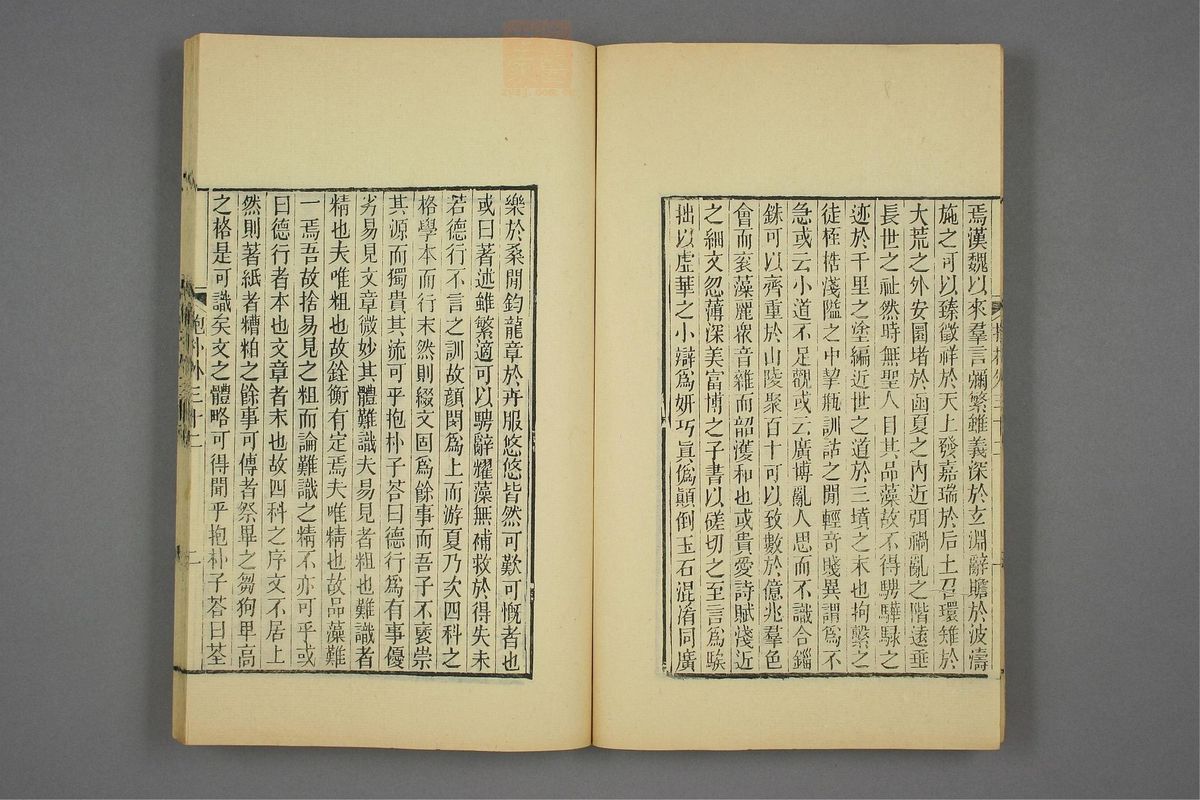 焉漢魏以來羣言彌繁雖義深於玄淵辭贍於波濤
施之可以臻徵祥於天上發嘉瑞於后土召環雉於
大荒之外安圜堵於函夏之內近弭禍亂之階遠垂
長世之祉然時無聖人目其品藻故不得騁驊騄之
迹於千里之塗編近世之道於三墳之末也拘繫之
徒桎梏淺隘之中挈瓶訓詁之閒輕奇賤異謂爲不
急或云小道不足觀或云廣博亂人思而不識合錙
銖可以齊重於山陵聚百十可以致數於億兆羣色
會而衮藻麗衆音雜而韶濩和也或貴愛詩賦淺近
之細文忽薄深美富博之子書以磋切之至言爲騃
拙以虛華之小辯爲妍巧眞僞顚倒玉石混淆同廣
樂於桑閒鈞龍章於卉服悠悠皆然可歎可慨者也
或曰著述雖繁適可以騁辭耀藻無補救於得失未
若德行不言之訓故顔閔爲上而游夏乃次四科之
格學本而行末然則綴文固爲餘事而吾子不襃崇
其源而獨貴其流可乎抱朴子荅曰德行爲有事優
劣易見文章微妙其體難識夫易見者粗也難識者
精也夫唯粗也故銓衡有定焉夫唯精也故品藻難
一焉吾故捨易見之粗而論難識之精不亦可乎或
曰德行者本也文章者末也故四科之序文不居上
然則著紙者糟粕之餘事可傳者祭畢之芻狗卑高
之格是可識矣文之體略可得聞乎抱朴子荅曰荃
抱朴外三十二
二